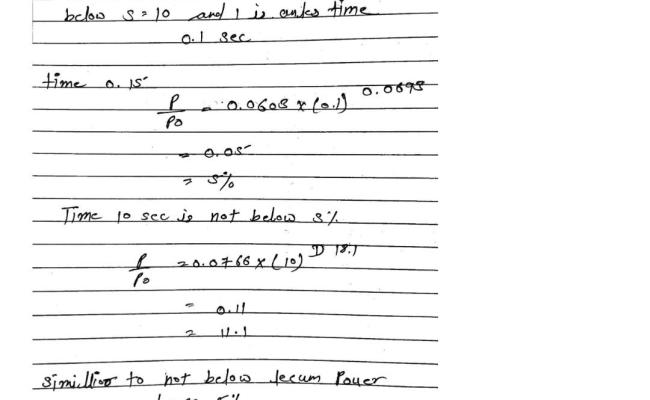 below s = 10 and 1 is ankes time
0.1 sec
time 0.15
P/Po = 0.0608 x (0.1) 0.0695
= 0.05
= 5%
Time 10 sec is not below 5%
P/Po = 0.0766 x (10) D 18.1
= 0.11
= 11.1
simillior to not below Power